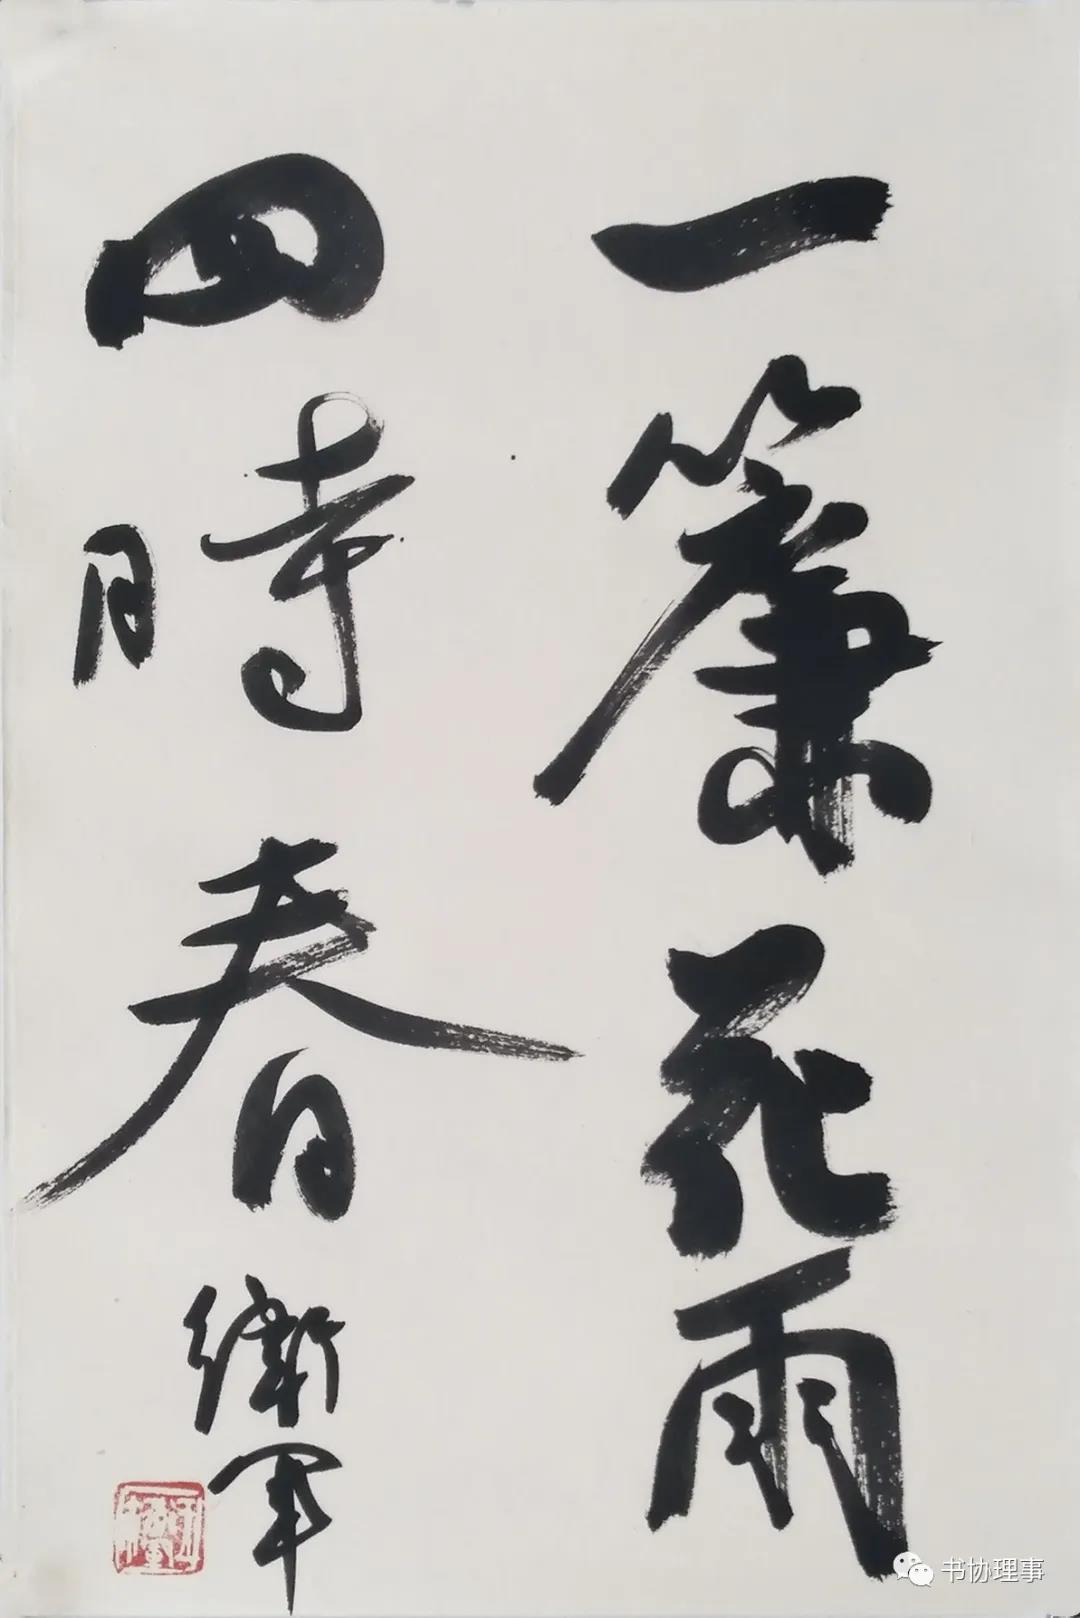 一簾花雨
四時春
衛軍
书协理事